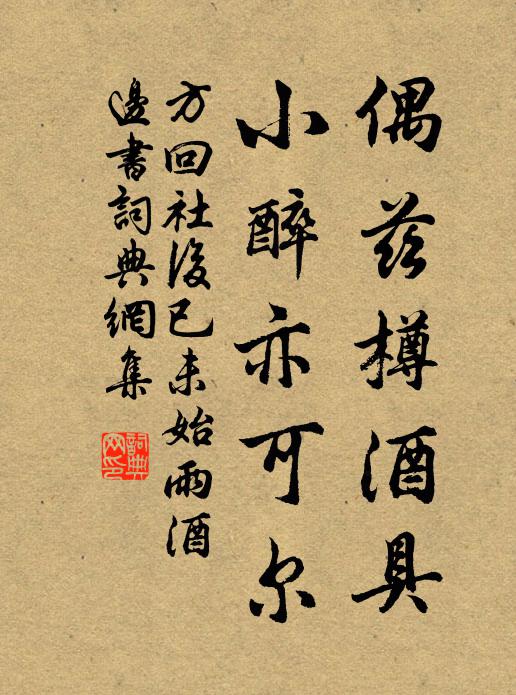 偶茲樽酒具
小醉亦可尔
方回社後己未始雨酒
邊書詞典網集
詞典网印